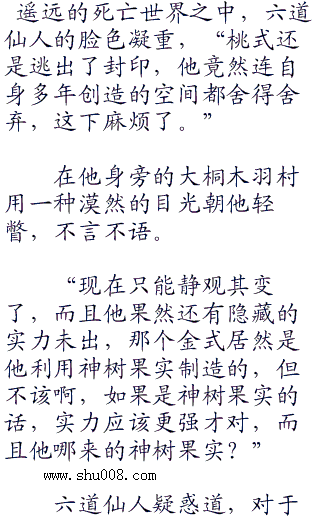 遥远的死亡世界之中，六道
仙人的脸色凝重，“桃式还
是逃出了封印，他竟然连自
身多年创造的空间都舍得舍
弃，这下麻烦了。”
在他身旁的大桐木羽村
用一种漠然的目光朝他轻
瞥，不言不语。
“现在只能静观其变
了，而且他果然还有隐藏的
实力未出，那个金式居然是
他利用神树果实制造的，但
不该啊，如果是神树果实的
话，实力应该更强才对，而
且他哪来的神树果实？”
www.shu008.com
六道仙人疑惑道，对于